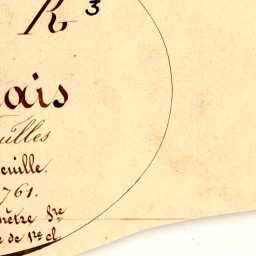 R 3
ais
ulles
euille.
761.
mètre
e de 1re cl